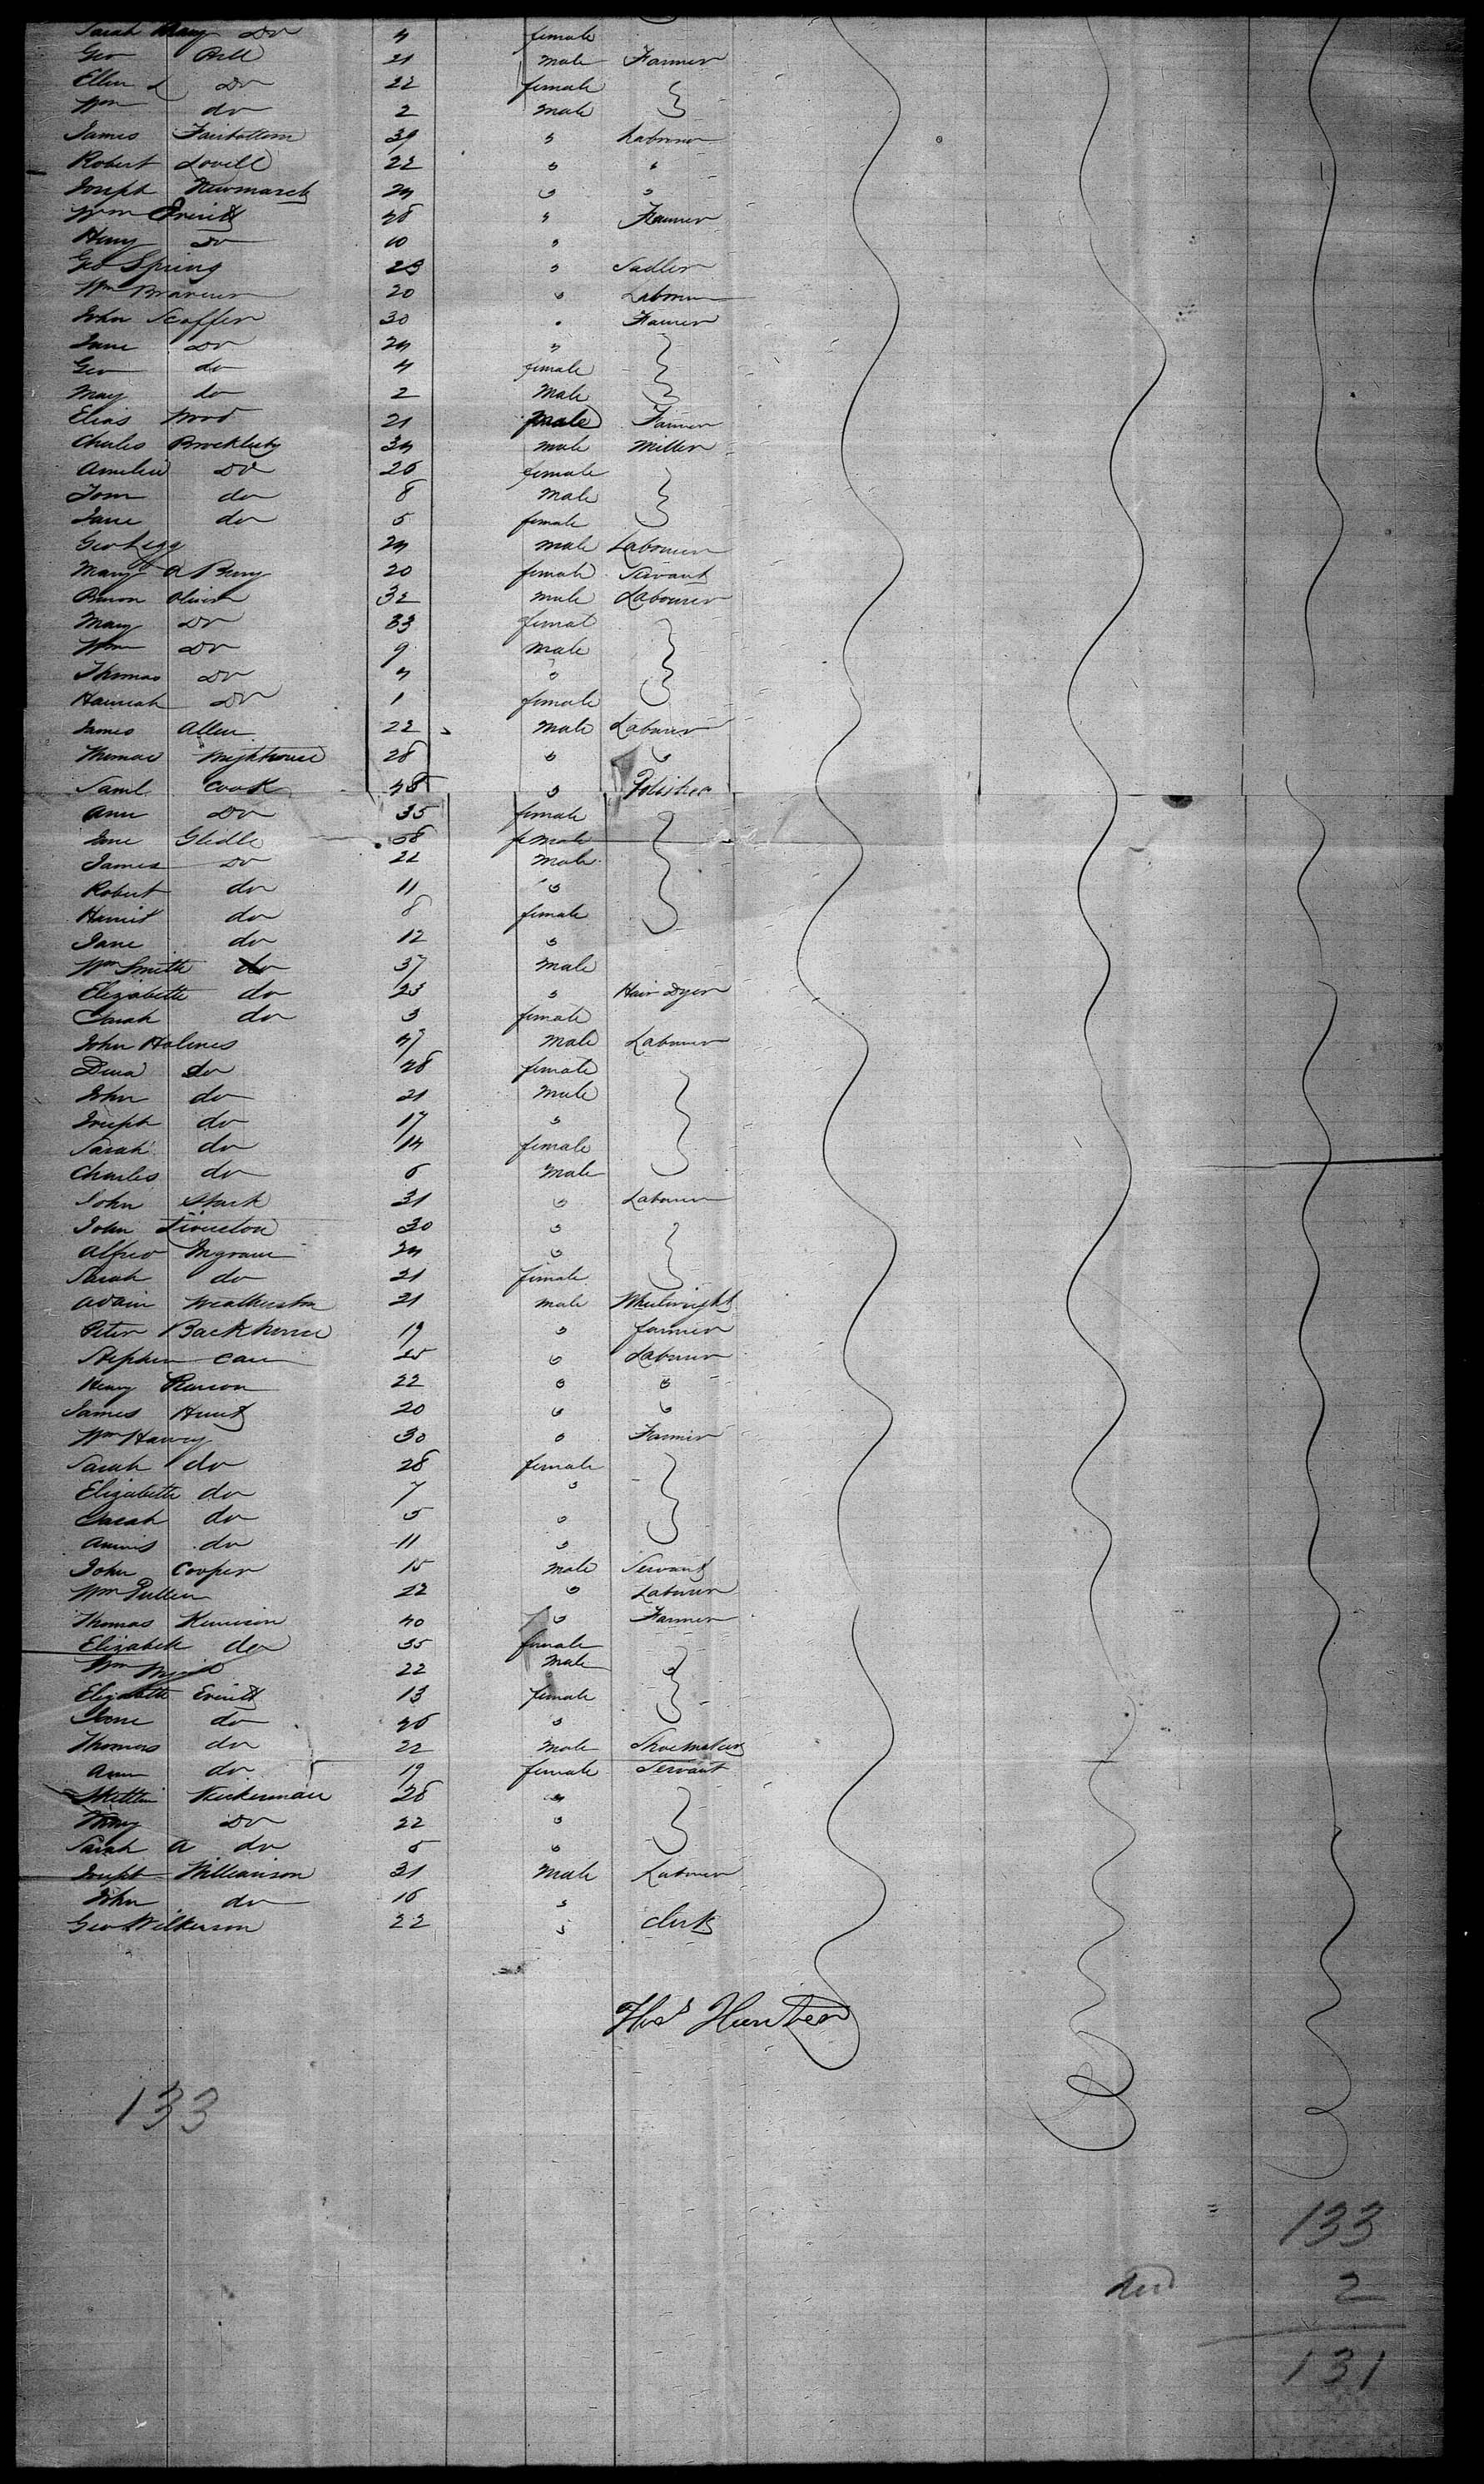 Sarah Mary Do 4 female
Geo Bell 21 male Farmer
Ellen Do 22 female
Wm do 2 male
James Fairbottom 39 " Labourer
Robert Lovell 22 " "
Joseph Newmarch 24 " "
Wm Everitt 48 " Farmer
Henry Do 10 "
Geo Spring 23 " Sadler
Wm 20 " Labourer
John Scoffin 30 " Farmer
Jane Do 24 "
Geo do 4 female
Mary do 2 Male
Elias Wood 21 male Farmer
Charles Brocklesby 34 male Miller
Amelia Do 26 female
Tom do 8 Male
Jane do 5 female
Geo Legg 24 male Labourer
Mary A Berry 20 female Servant
Oliver 32 male Labourer
Mary Do 33 femal
Wm Do 9 male
Thomas Do 4 "
Hannah Do 1 female
James Allen 22 male Labourer
Thomas 28 " "
Saml Cook 48 "
Ann Do 35 female
Jane Gledle 58 female
James Do 22 Male
Robert do 11 "
Harriet do 8 female
Jane do 12 "
Wm Smith do 37 male
Elizabeth do 23 " Hair Dyer
Sarah do 3 female
John Holmes 47 Male Labourer
do 48 female
John do 21 Male
Joseph do 17 "
Sarah do 14 female
Charles do 6 Male
John 31 " Labourer
John 30 "
Alfred Ingram 24 "
Sarah do 21 female
Adam Weatherston 21 male Wheelwright
Peter Backhouse 19 " farmer
Stephen 25 " Labourer
Henry 22 " "
James Hunt 20 " "
Wm Harvey 30 " Farmer
Sarah do 28 female
Elizabeth do 7 "
Sarah do 5 "
do 11 "
John Cooper 15 male Servant
Wm Pullen 22 " Labourer
Thomas 40 " Farmer
Elizabeth do 35 female
Wm 22 Male
Elizabeth Everitt 13 female
Jane do 46 "
Thomas do 22 Male Shoemaker
Ann do 19 female Servant
28 "
Do 22 "
Sarah A do 5 "
Joseph Williamson 31 Male Labourer
John do 16 "
Geo Wilkerson 22 " Clerk
Thos Hunter
133
133
2
131